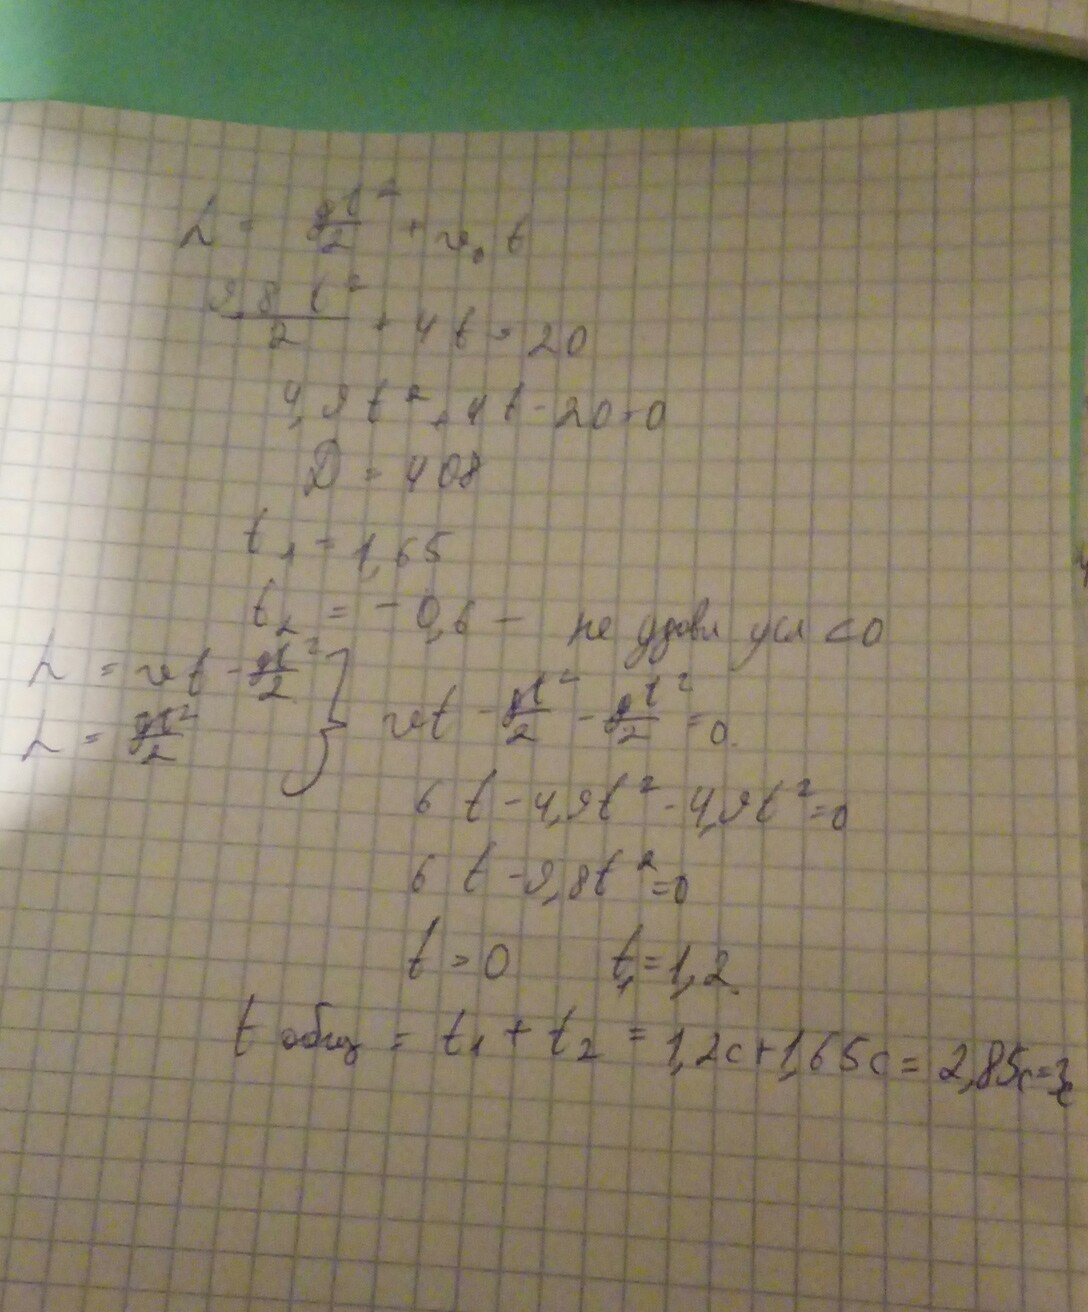 L = gt²/2 + v₀t
9,8 t²/2 + 4t = 20
4,9t² + 4t - 20 = 0
D = 408
t₁ = 1,65
t₂ = - 0,6 - не удовл усл < 0
L = vt - gt²/2
L = gt²/2 } vt - gt²/2 - gt²/2 = 0.
6 t - 4,9t² - 4,9t² = 0
6 t - 9,8t² = 0
t = 0 t₁ = 1,2.
t общ = t₁ + t₂ = 1,2с + 1,65с = 2,85с = 3с